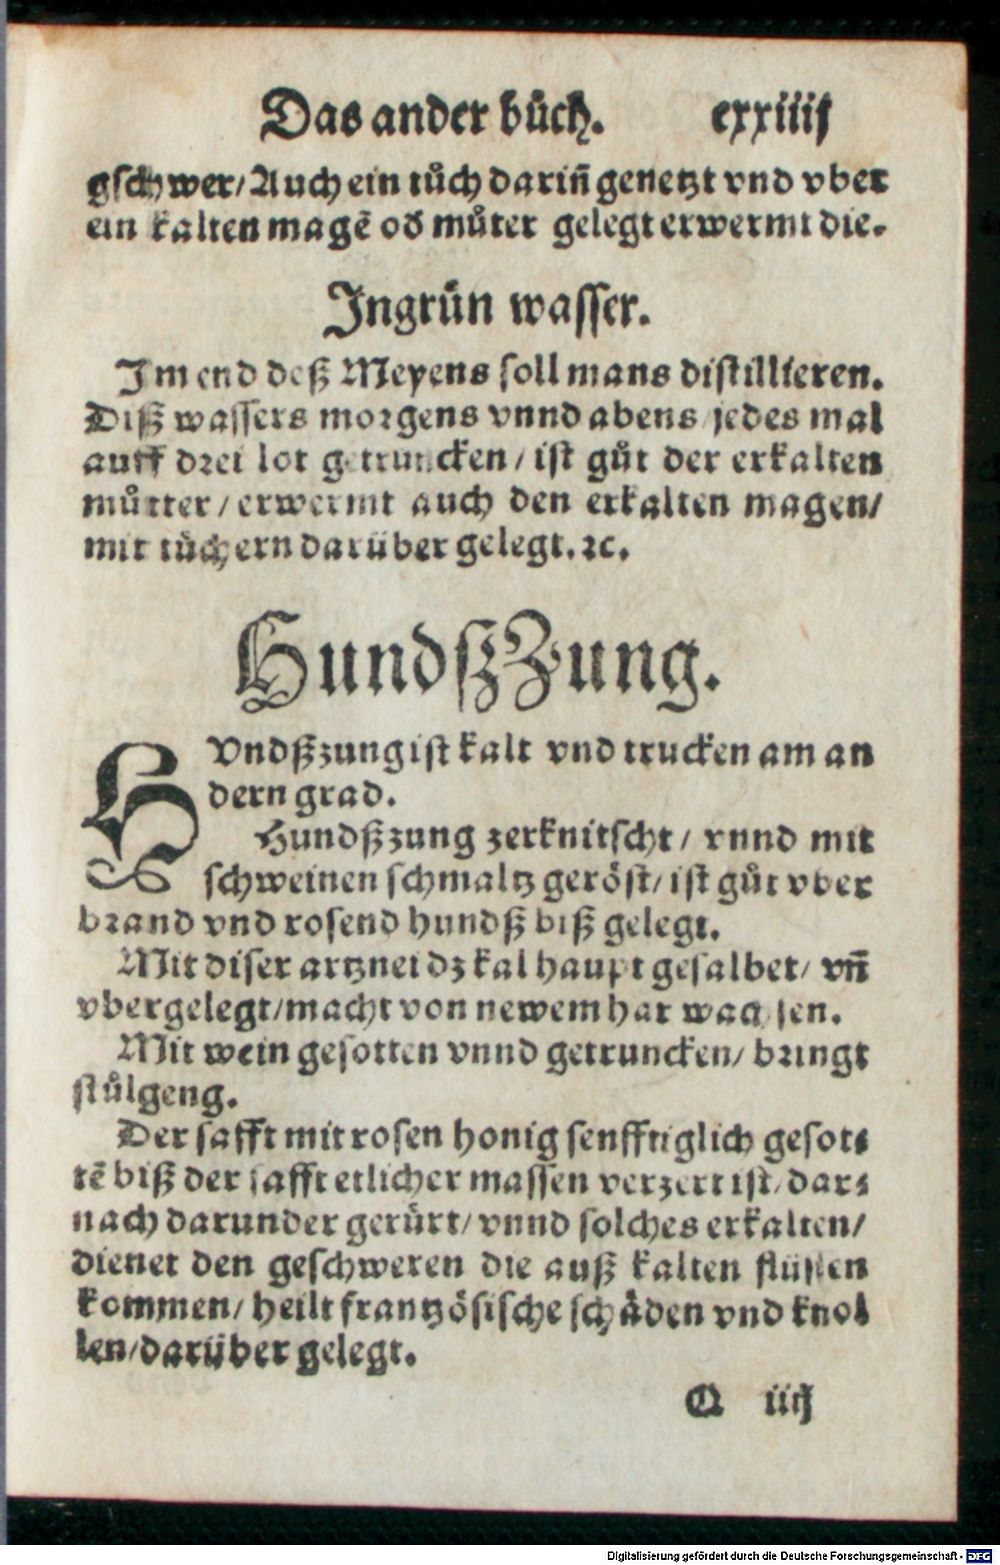 Das ander bůch. cxxiiij
gschwer/ Auch ein tůch dariñ genetzt vnd vber
ein kalten magẽ oď můter gelegt erwermt die.
Jngrün wasser.
Jm end deß Meyens soll mans distillieren.
Diß wassers morgens vnnd abens jedes mal
auff drei lot getruncken/ ist gůt der erkalten
můtter/ erwermt auch den erkalten magen/
mit tůchern darüber gelegt. ⁊c.
HundßZung.
HVndßzung ist kalt vnd trucken am an
dern grad.
Hundßzung zerknitscht/ vnnd mit
schweinen schmaltz geröst/ ist gůt vber
brand vnd rosend hundß biß gelegt.
Mit diser artznei dz kal haupt gesalbet/ vñ
vbergelegt/ macht von newem har wachsen.
Mit wein gesotten vnnd getruncken/ bringt
stůlgeng.
Der safft mit rosen honig senfftiglich gesot⸗
tẽ biß der safft etlicher massen verzert ist/ dar⸗
nach darunder gerürt/ vnnd solches erkalten/
dienet den geschweren die auß kalten flüssen
kommen/ heilt frantzösische schäden vnd knol
len/ darüber gelegt.
Q iiij
Digitalisierung gefördert durch die Deutsche Forschungsgemeinschaft - DFG